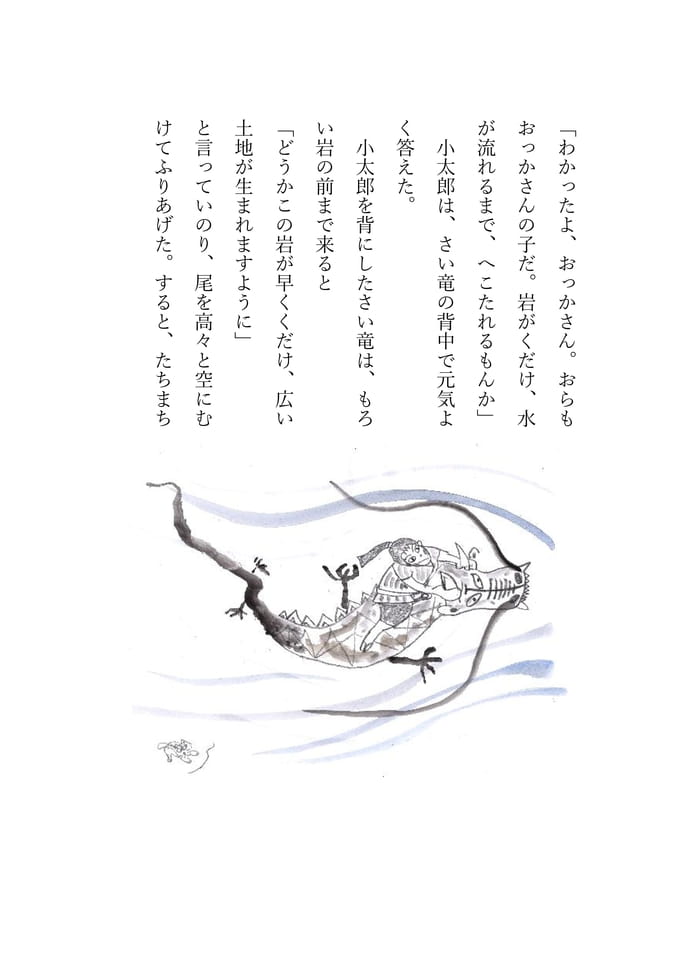 「わかったよ、おっかさん。おらも
おっかさんの子だ。岩がくだけ、水
が流れるまで、へこたれるもんか」
　小太郎は、さい竜の背中で元気よ
く答えた。
　小太郎を背にしたさい竜は、もろ
い岩の前まで来ると
「どうかこの岩が早くくだけ、広い
土地が生まれますように」
と言っていのり、尾を高々と空にむ
けてふりあげた。すると、たちまち